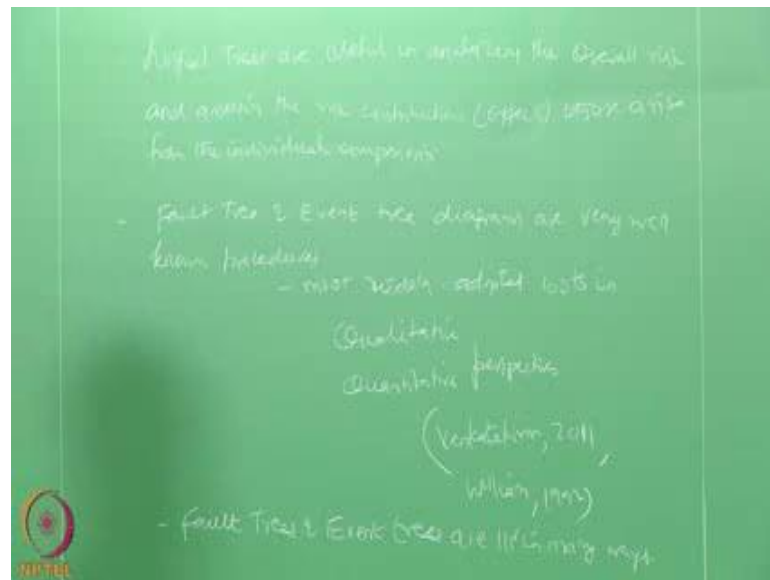 Logical Trees are useful in analyzing the overall risk
and assess the risk contribution (effects) arise
from the individual components
- Fault Tree & Event tree diagrams are very well
known procedures
- most widely adopted tools in
Qualitative
Quantitative perspective
(Venkatesh, 2011,
William, 1992)
- Fault Trees & Event trees are in many ways
NPTEL